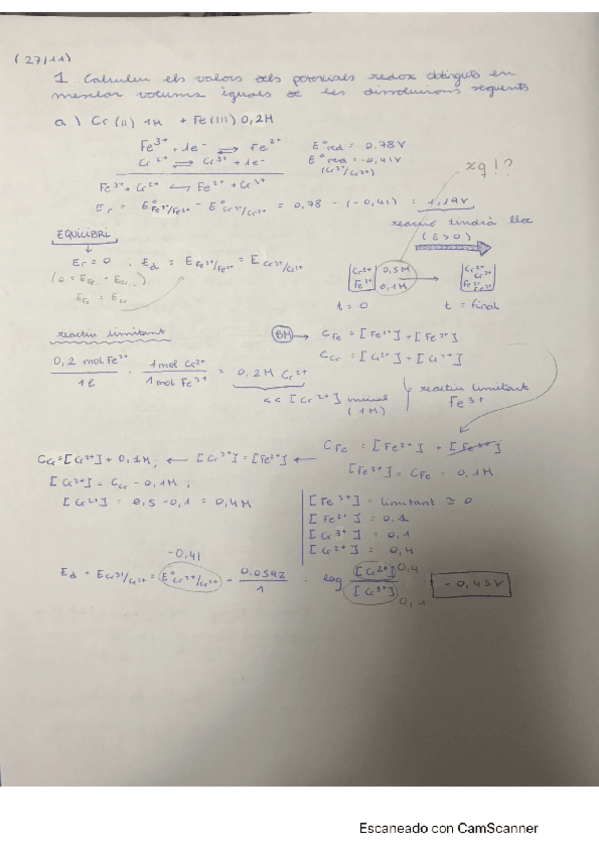 (27/11)
1 Calculeu els valors dels potencials redox obtinguts en
mesclar volums iguals de les dissolucions següents
a) Cr(II) 1M + Fe(III) 0,2M
Fe³⁺ + 1e⁻ ⇌ Fe²⁺ E°red = 0.78V
Cr²⁺ ⇌ Cr³⁺ + 1e⁻ E°red = -0,41V
(Cr³⁺/Cr²⁺)
xq!?
Fe³⁺ + Cr²⁺ ⇌ Fe²⁺ + Cr³⁺
Er = E°Fe³⁺/Fe²⁺ - E°Cr³⁺/Cr²⁺ = 0,78 - (-0,41) = 1,19V
reacció tindrà lloc
(E>0)
EQUILIBRI
Er = 0 ; Ed = EFe³⁺/Fe²⁺ = ECr³⁺/Cr²⁺
(0 = EFe - ECr)
EFe = ECr
Cr²⁺ 0,5M
Fe³⁺ 0,1M
Cr²⁺ Cr³⁺
Fe²⁺ Fe³⁺
t = 0 t = final
reactiu limitant
BM → CFe = [Fe²⁺] + [Fe³⁺]
CCr = [Cr²⁺] + [Cr³⁺]
0,2 mol Fe³⁺ / 1l · 1 mol Cr²⁺ / 1 mol Fe³⁺ = 0,2M Cr²⁺
<< [Cr²⁺] inicial
(1M)
reactiu limitant
Fe³⁺
CFe = [Fe²⁺] + [Fe³⁺]
CCr = [Cr²⁺] + 0,1M ; ← [Cr³⁺] = [Fe²⁺] ←
[Fe²⁺] = CFe = 0,1M
[Cr²⁺] = CCr - 0,1M ;
[Cr²⁺] = 0,5 - 0,1 = 0,4M
[Fe³⁺] = limitant ≅ 0
[Fe²⁺] = 0,1
[Cr³⁺] = 0,1
[Cr²⁺] = 0,4
-0,41
Ed = ECr³⁺/Cr²⁺ = E°Cr³⁺/Cr²⁺ - 0.0592 / 1 · log [Cr²⁺] 0,4 / [Cr³⁺] 0,1 = -0,45V
Escaneado con CamScanner